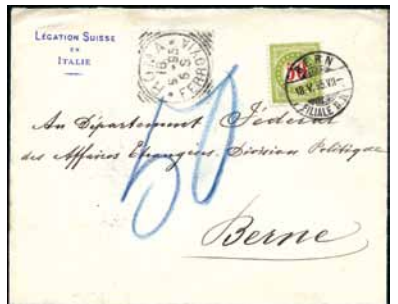 LÉGATION SUISSE
EN
ITALIE
ROMA
FERROVIA
BERN
FILIALE
50
Au Département Fédéral
des Affaires Etrangères. Division Politique
Berne